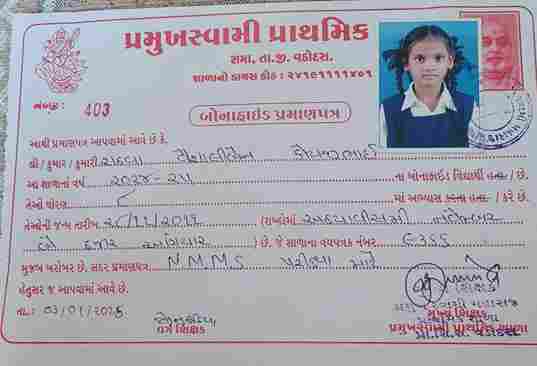 પ્રમુખસ્વામી પ્રાથમિક
સમા, તા.જી. વડોદરા.
શાળાનો ડાયસ કોડ : ૨૪૧૯૧૧૧૧૪૦૧
નંબર : 403
બોનાફાઈડ પ્રમાણપત્ર
આથી પ્રમાણપત્ર આપવામાં આવે છે કે,
શ્રી / કુમાર / કુમારી
આ શાળાનાં વર્ષ ૨૦૨૪-૨૫ ના બોનાફાઈડ વિદ્યાર્થી હતા / છે.
તેઓ ધોરણ માં અભ્યાસ કરતા હતા / કરે છે.
તેઓની જન્મ તારીખ ૨૮/૧૧/૨૦૧૧ (શબ્દોમાં અઠ્ઠાવીસમી નવેમ્બર
બે હજાર અગિયાર ) છે. જે શાળાના વયપત્રક નંબર
મુજબ બરોબર છે. સદર પ્રમાણપત્ર N.M.M.S પરીક્ષા માટે
હેતુસર જ આપવામાં આવે છે.
તા. : 03/01/2025
વર્ગ શિક્ષક
મુખ્ય શિક્ષક
પ્રમુખસ્વામી પ્રાથમિક શાળા